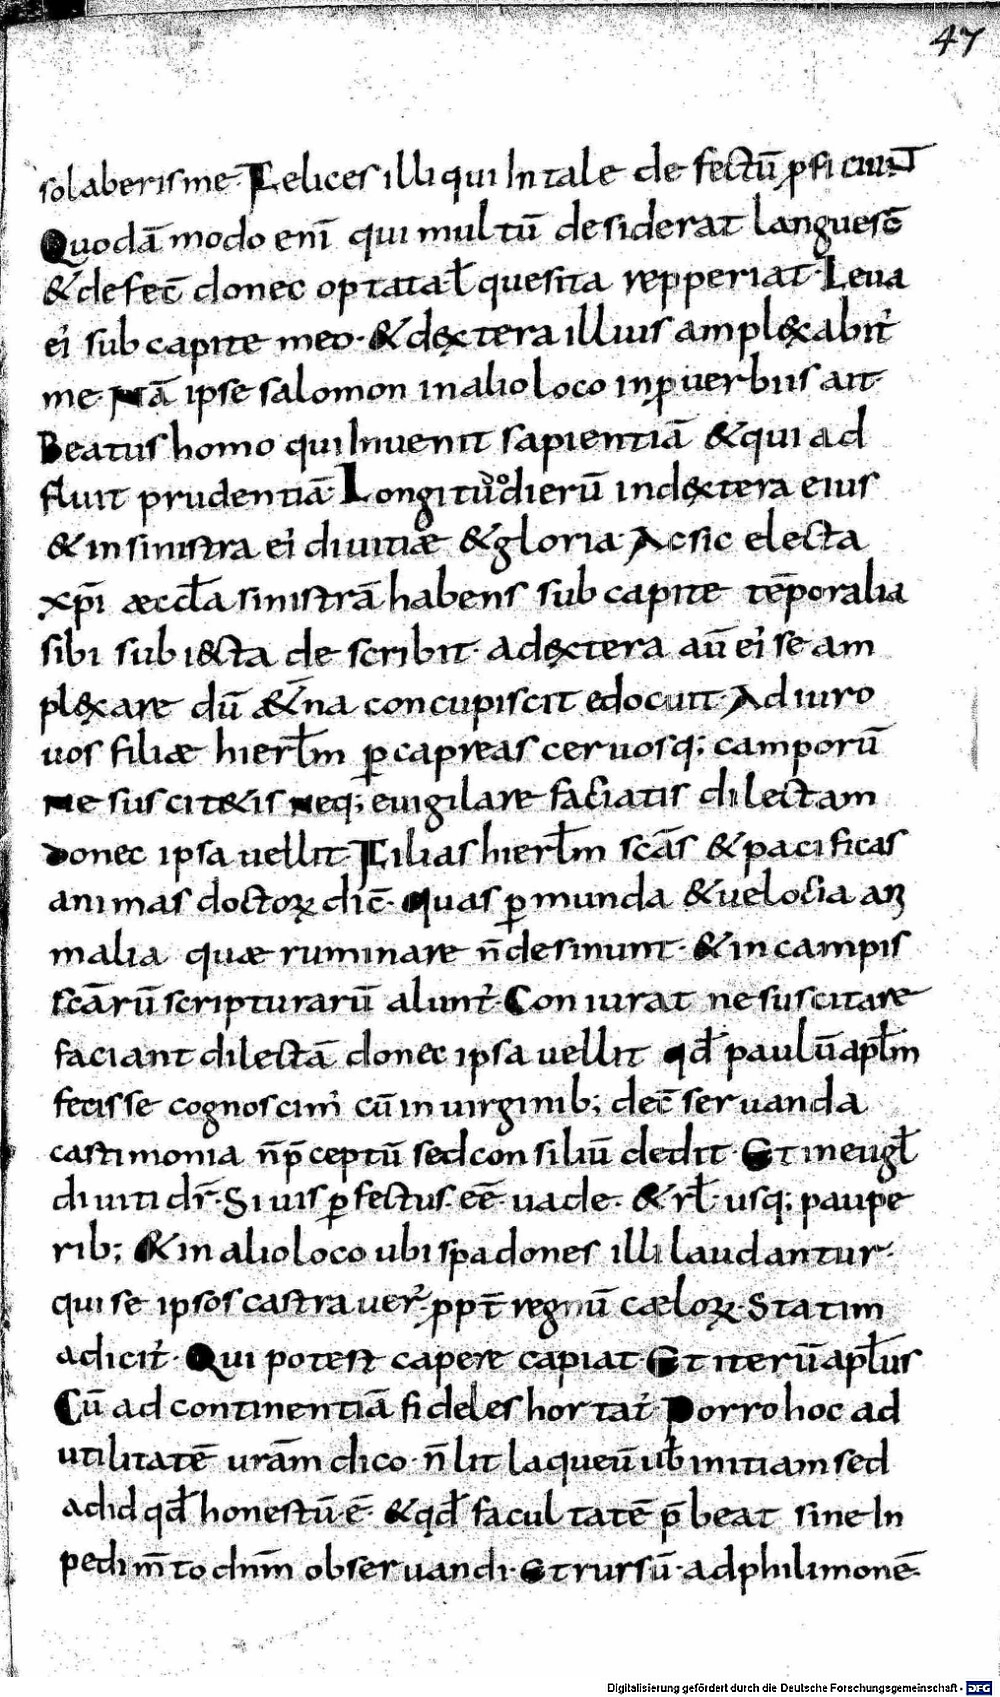 47
solaberis me. Felices illi qui In tale defectū ꝑficiuī
Quodā modo enī qui multū desiderat languesc̄
& defec̄ donec optatał quesita repperiat. Leua
ei' sub capite meo. & dextera illius amplexabit'
me. Nā ipse salomon in alio loco in ꝓuerbiis ait.
Beatus homo qui Inuenit sapientiā & qui ad
fluit prudentiā. Longitudo dierū in dextera eius
& in sinistra ei' diuitiæ & gloria. Ac sic electa
xp̄i æccl̄a sinistrā habens sub capite tēporalia
sibi subiecta describit. a dextera aū ei' se am
plexare dū æt̄na concupiscit edocuit. Adiuro
uos filiæ hierl̄m ꝑ capreas ceruosq; camporū
Ne suscitetis neq; euigilare faciatis dilectam
donec ipsa uellit. Filias hierl̄m sc̄as & pacificas
animas doctoꝝ dic̄. Quas ꝑ munda & uelocia ani
malia quæ ruminare n̄ desinunt. & in campis
sc̄arū scripturarū alunt'. Coniurat ne suscitare
faciant dilectā donec ipsa uellit qđ paulū apl̄m
fecisse cognoscim' cū in uirginib; dec̄ seruanda
castimonia n̄ p̄ceptū sed consiliū dedit. Et in eugł
diuiti dr̄. Si uis ꝑfectus. eē uade. & rł. usq; paupe
rib; & in alio loco ubi spadones illi laudantur.
qui se ipsos castrauer' ꝓpt̄ regnū cæloꝝ. Statim
adicit'. Qui potest capere capiat. Et iterū apl̄us
Cū ad continentiā fideles hortat'. Porro hoc ad
utilitatē urām dico. n̄ Ut laqueū uƀ initiam sed
ad id qđ honestū ē. & qđ facultatē p̄beat sine In
pedim̄to dn̄m obseruandi. Et rursū. ad philimonē.
Digitalisierung gefördert durch die Deutsche Forschungsgemeinschaft - DFG